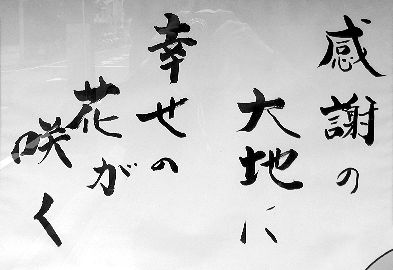 感謝の
大地に
幸せの
花が
咲く